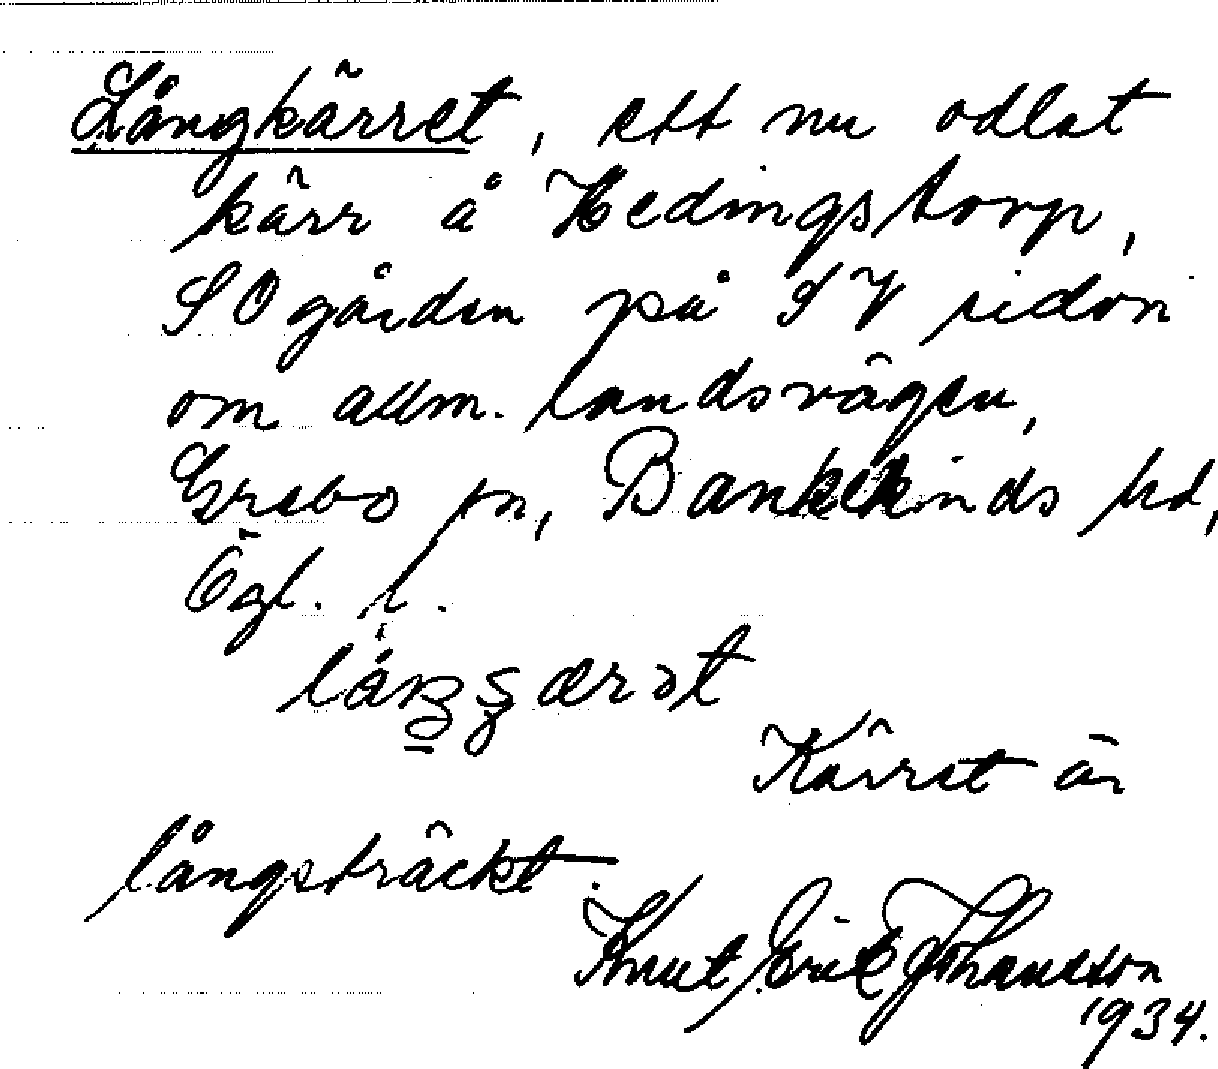 Långkärret, ett nu odlat
kärr å Hedingstorp,
SO gården på SV sidan
om allm. landsvägen,
Grebo sn, Bankekinds hd,
Ögl. l.
Kärret är
långsträckt.
Knut Erik Johansson
1934.